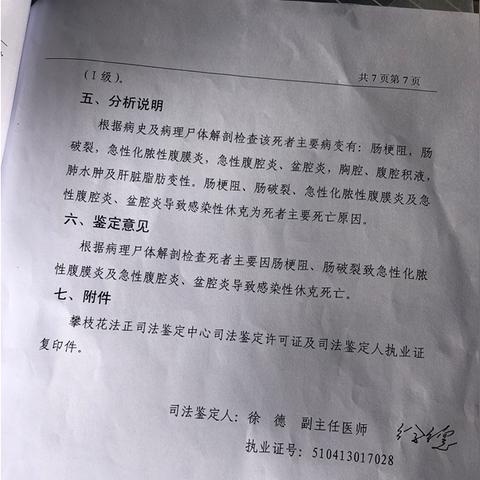 （I级）。
共7页第7页
五、分析说明
根据病史及病理尸体解剖检查该死者主要病变有：肠梗阻，肠
破裂，急性化脓性腹膜炎，急性腹腔炎、盆腔炎，胸腔、腹腔积液，
肺水肿及肝脏脂肪变性。肠梗阻、肠破裂、急性化脓性腹膜炎及急
性腹腔炎、盆腔炎导致感染性休克为死者主要死亡原因。
六、鉴定意见
根据病理尸体解剖检查死者主要因肠梗阻、肠破裂致急性化脓
性腹膜炎及急性腹腔炎、盆腔炎导致感染性休克死亡。
七、附件
攀枝花法正司法鉴定中心司法鉴定许可证及司法鉴定人执业证
复印件。
司法鉴定人：徐 德 副主任医师
执业证号：510413017028